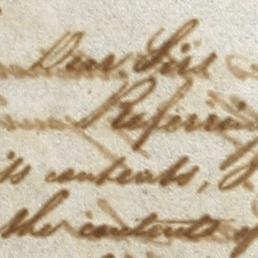 Dear Sir
Referring
its contents,
the contents of